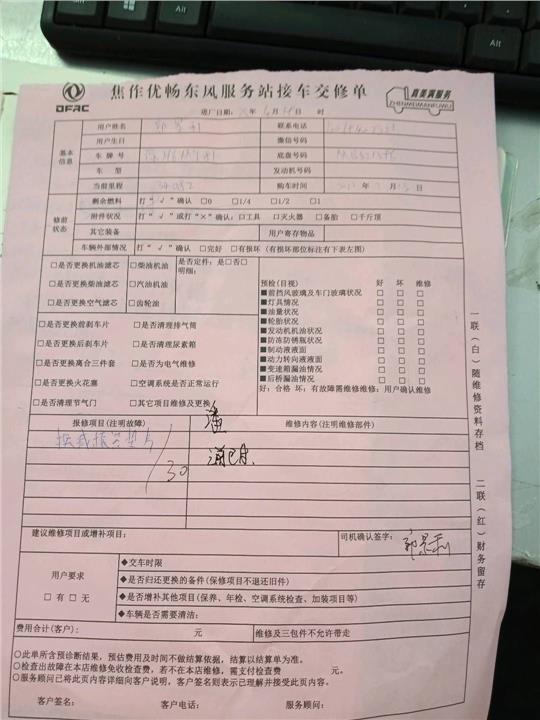 DFAC 焦作优畅东风服务站接车交修单 真美满服务
ZHENMEIMANFUWU
进厂日期: 年 月 日 时
基本信息
用户姓名 联系电话
用户生日 微信号码
车牌号 底盘号码
车型 发动机号码
当前里程 购车时间 年 月 日
修前状态
剩余燃料 打“√”确认 □0 □1/4 □1/2 □1
附件状况 打“√”或打“×”确认:□工具 □灭火器 □备胎 □千斤顶
其它装备 用户寄存物品
车辆外部情况 打“√”确认 □完好 □有损坏(有损坏部位标注有下表左图)
□是否更换机油滤芯 □柴油机油 是否定件:是□否□
明细:
□是否更换柴油滤芯 □汽油机油
□是否更换空气滤芯 □齿轮油
□是否更换前刹车片 □是否清理排气筒
□是否更换后刹车片 □是否清理尿素箱
□是否更换离合三件套 □是否为电气维修
□是否更换火花塞 □空调系统是否正常运行
□是否清理节气门 □其它项目维修及更换
预检(目视) 好 坏 维修
■前挡风玻璃及车门玻璃状况 □ □ □
■灯具情况 □ □ □
■油量状况 □ □ □
■轮胎状况 □ □ □
■发动机机油状况 □ □ □
■防冻防锈瓶状况 □ □ □
■制动液液面 □ □ □
■动力转向液液面 □ □ □
■变速箱漏油情况 □ □ □
■后桥漏油情况 □ □ □
好:合格 坏:有故障需维修维修:用户确认维修
报修项目(注明故障) 维修内容(注明维修部件)
30
建议维修项目或增补项目: 司机确认签字:
用户要求
□有 □无
◆交车时限
◆是否归还更换的备件(保修项目不退还旧件)
◆是否增补其他项目(保养、年检、空调系统检查、加装项目等)
◆车辆是否需要清洁:
费用合计(客户): 元 维修及三包件不允许带走
○此单所含预诊断结果,预估费用及时间不做结算依据,结算以结算单为准。
○检查出故障在本店维修免收检查费,若不在本店维修,需支付检查费 元。
○服务顾问已将此页内容详细向客户说明,客户签名则表示已理解并接受此页内容。
客户签名: 客户电话: 服务顾问:
一联(白)随维修资料存档
二联(红)财务留存